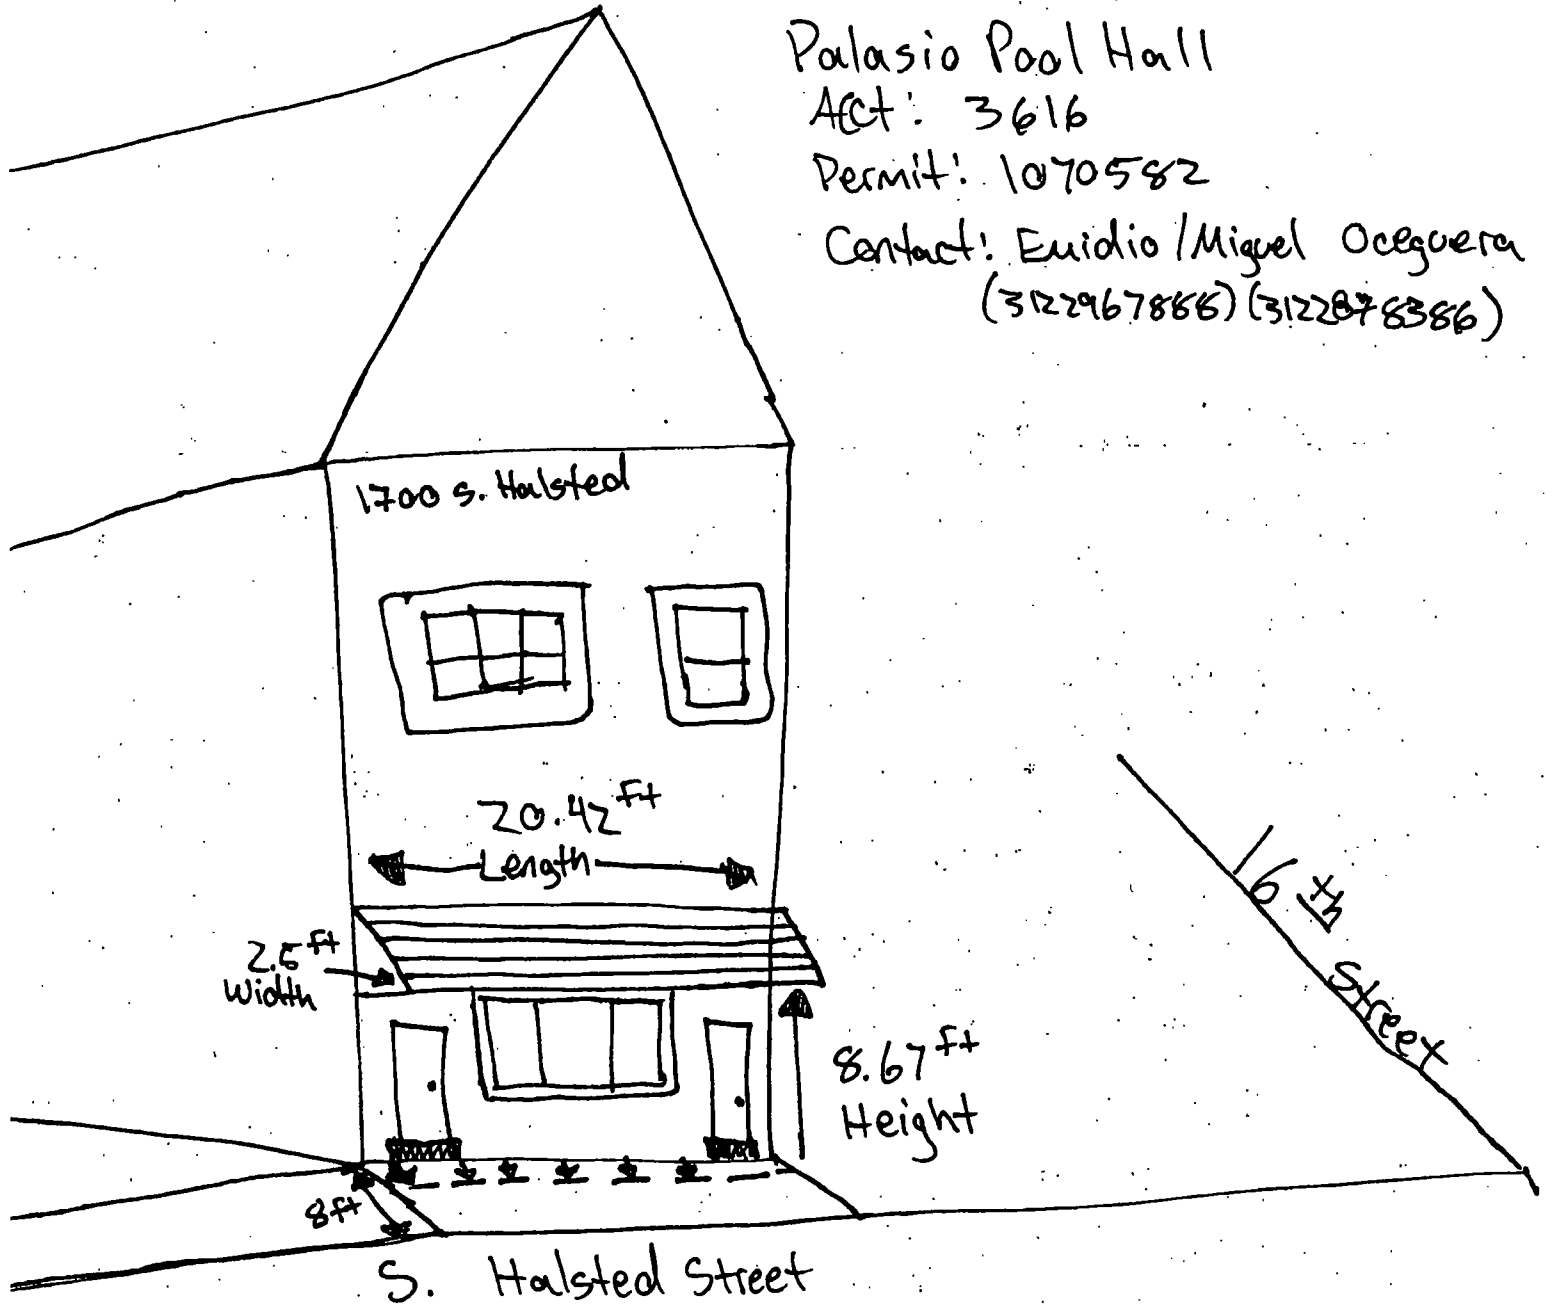 Palasio Pool Hall
Acct: 3616
Permit: 1070582
Contact: Emidio/Miguel Oceguera
(3122967888) (3122878386)
1700 S. Halsted
20.42 ft
Length
2.5 ft
Width
8.67 ft
Height
16th Street
8ft
S. Halsted Street